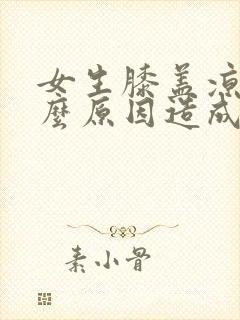 女生膝盖凉
麼原因造成
素小骨